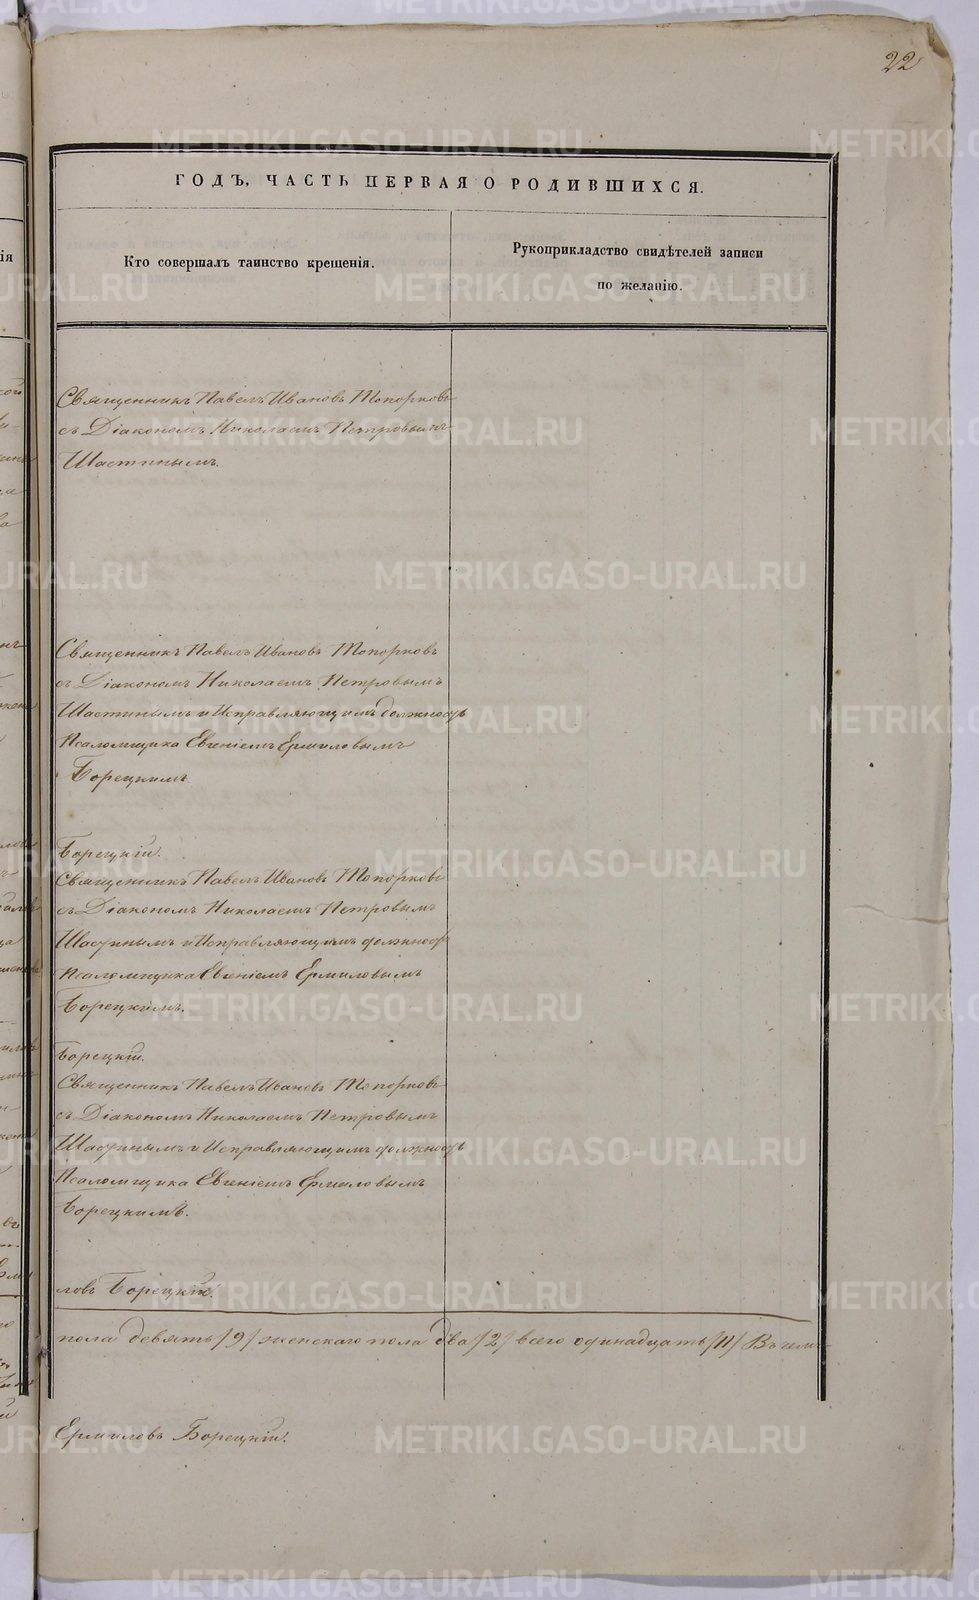 22
ГОДЪ, ЧАСТЬ ПЕРВАЯ О РОДИВШИХСЯ.
Кто совершалъ таинство крещенія.
Рукоприкладство свидѣтелей записи
по желанію.
Священникъ Павелъ Ивановъ Топорковъ
съ Діакономъ Николаемъ Петровымъ
Шастинымъ.
Священникъ Павелъ Ивановъ Топорковъ
съ Діакономъ Николаемъ Петровымъ
Шастинымъ и Исправляющимъ должность
Псаломщика Евгеніемъ Ермиловымъ
Борецкимъ
Борецкій.
Священникъ Павелъ Ивановъ Топорковъ
съ Діакономъ Николаемъ Петровымъ
Шастинымъ и Исправляющимъ должность
Псаломщика Евгеніемъ Ермиловымъ
Борецкимъ.
Борецкій.
Священникъ Павелъ Ивановъ Топорковъ
съ Діакономъ Николаемъ Петровымъ
Шастинымъ и Исправляющимъ должность
Псаломщика Евгеніемъ Ермиловымъ
Борецкимъ.
ловъ Борецкій.
пола девять /9/ женскаго пола два /2/ всего одинадцать /11/ Въ чемъ
Ермиловъ Борецкій.
METRIKI.GASO-URAL.RU